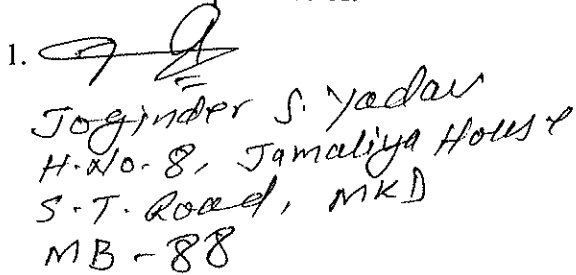 1.
Joginder S. Yadav
H.No. 8, Jamaliya House
S.T. Road, MKD
MB - 88